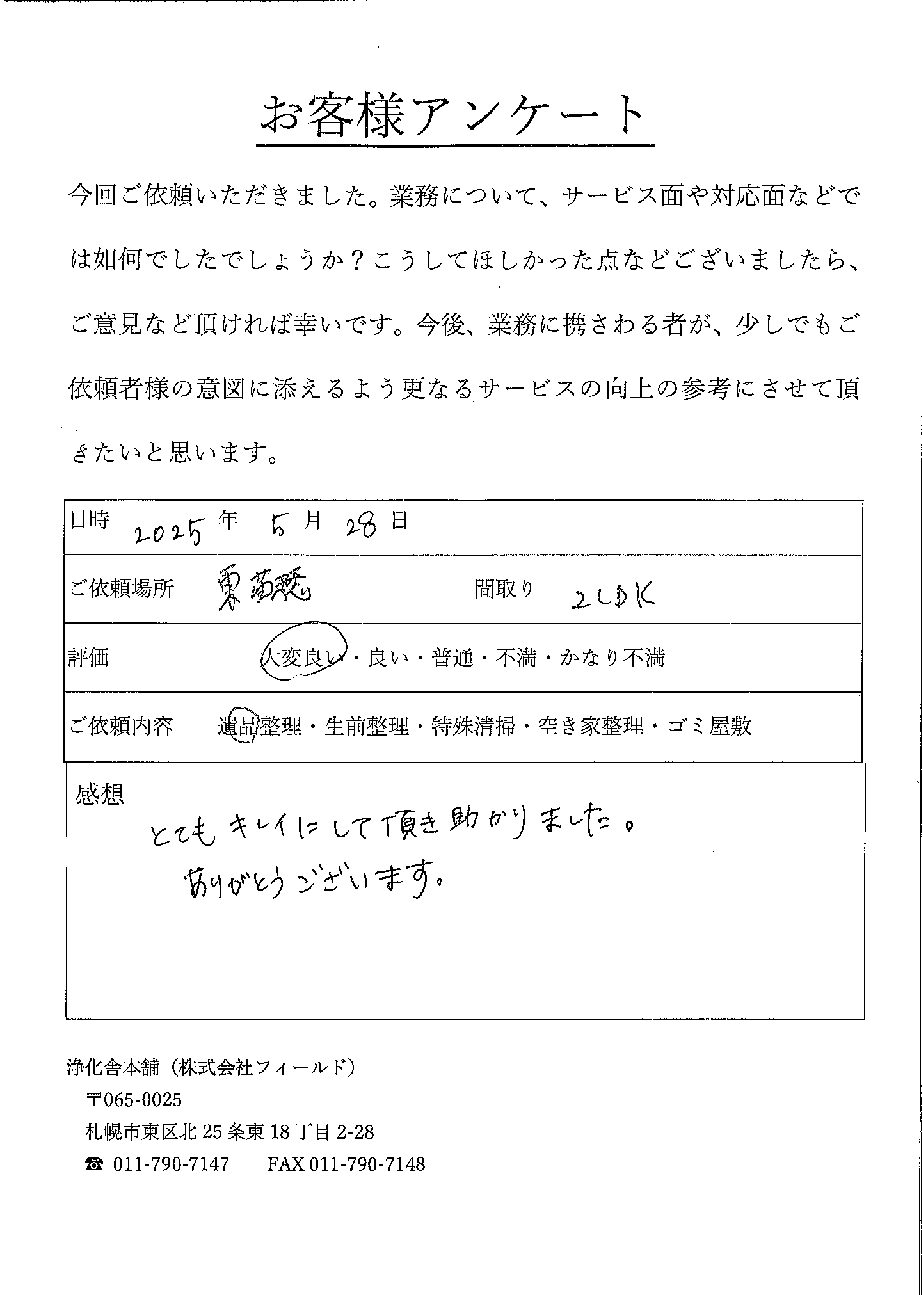 お客様アンケート
今回ご依頼いただきました。業務について、サービス面や対応面などで
は如何でしたでしょうか？こうしてほしかった点などございましたら、
ご意見など頂ければ幸いです。今後、業務に携さわる者が、少しでもご
依頼者様の意図に添えるよう更なるサービスの向上の参考にさせて頂
きたいと思います。
日時 2025 年 5 月 28 日
ご依頼場所 東苗穂 間取り 2LDK
評価 大変良い・良い・普通・不満・かなり不満
ご依頼内容 遺品整理・生前整理・特殊清掃・空き家整理・ゴミ屋敷
感想
とてもキレイにして頂き助かりました。
ありがとうございます。
浄化舎本舗（株式会社フィールド）
〒065-0025
札幌市東区北 25 条東 18 丁目 2-28
☎ 011-790-7147 FAX 011-790-7148